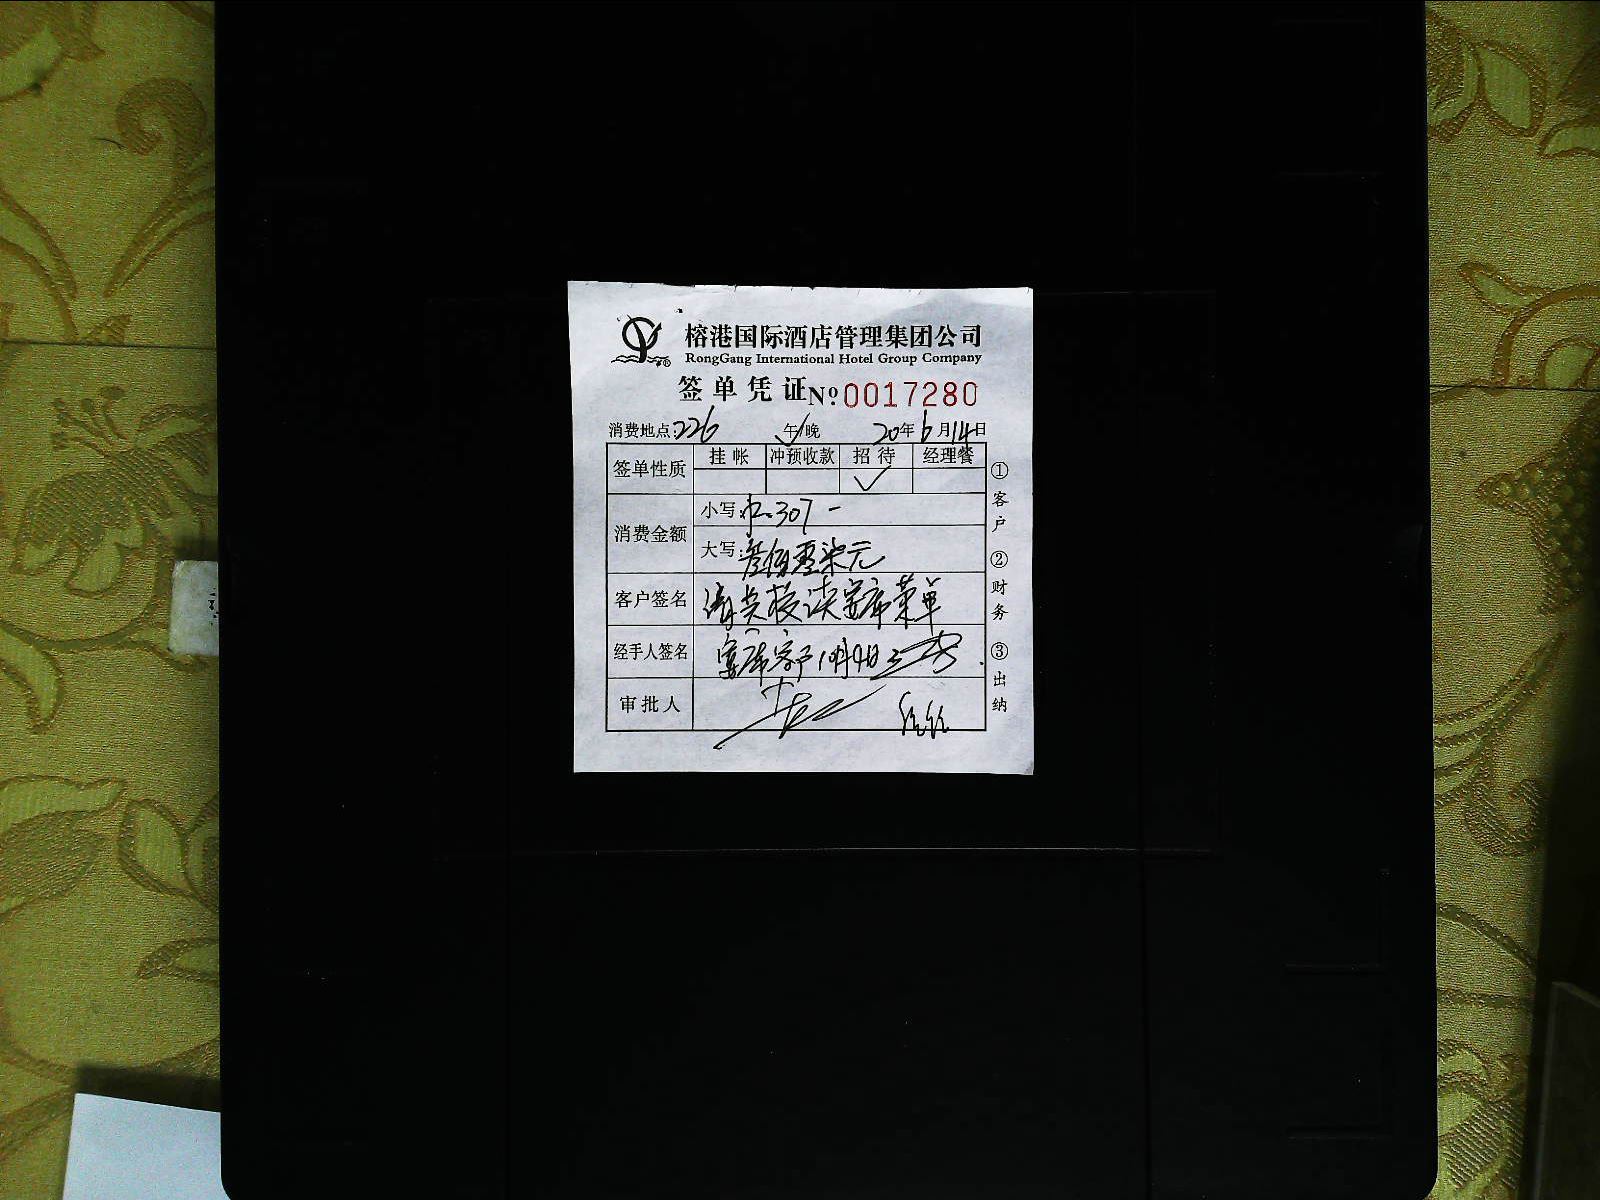 榕港国际酒店管理集团公司
RongGang International Hotel Group Company
签单凭证 Nº 0017280
消费地点:226 午/晚 20年6月14日
签单性质 挂帐 冲预收款 招待 经理餐
✓
消费金额 小写: 307-
大写:叁佰零柒元
客户签名 宴席菜单
经手人签名 宴席客户10月4日
审批人
①客户 ②财务 ③出纳